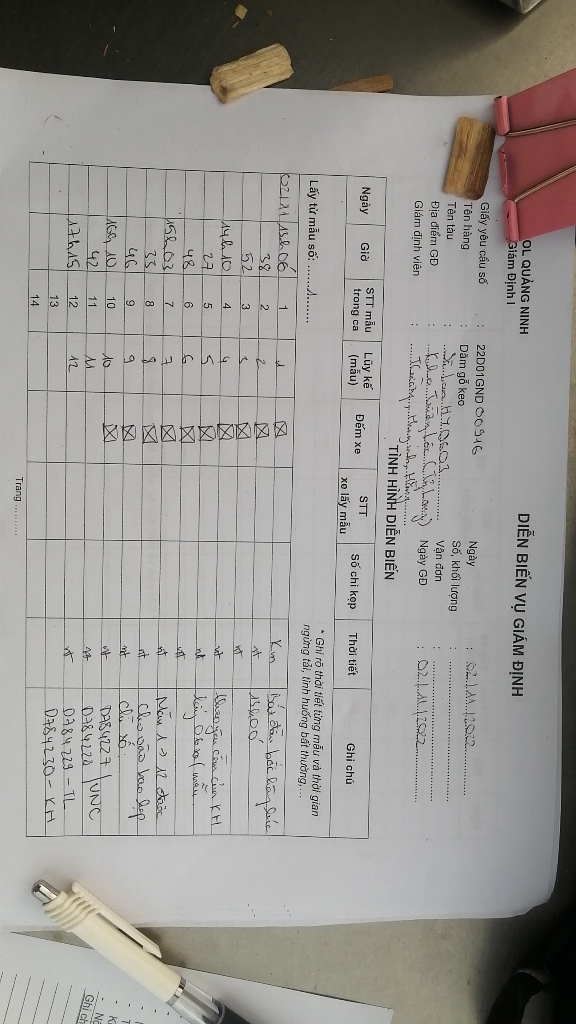 OL QUẢNG NINH
Giám Định I
DIỄN BIẾN VỤ GIÁM ĐỊNH
Giấy yêu cầu số : 22D01GND 00916
Ngày : 02/11/2022
Tên hàng : Dăm gỗ keo
Số, khối lượng :
Tên tàu :
Vận đơn :
Địa điểm GĐ :
Ngày GĐ : 02/11/2022
Giám định viên :
TÌNH HÌNH DIỄN BIẾN
Ngày Giờ STT mẫu trong ca Lũy kế (mẫu) Đếm xe STT xe lấy mẫu Số chì kẹp Thời tiết Ghi chú
Lấy từ mẫu số: ........1........
* Ghi rõ thời tiết từng mẫu và thời gian ngừng tải, tình huống bất thường,...
02/11 13h06 1 1 ☒ Km Bắt đầu bốc hàng lúc
38 2 2 ☒ nt 13h00
52 3 3 ☒ nt
14h10 4 4 ☒ nt theo yêu cầu của KH
27 5 5 ☒ nt lấy 06 xe/mẫu
48 6 6 ☒ nt
15h03 7 7 ☒ nt Mẫu 1 → 12 được
33 8 8 ☒ nt cho vào bao kẹp
46 9 9 ☒ nt chì số:
16h10 10 10 ☒ nt D784227
42 11 11 nt D784228 / VNC
17h15 12 12 nt D784229 - TL
13 D784230 - KH
14
Trang ..........
Ghi ch